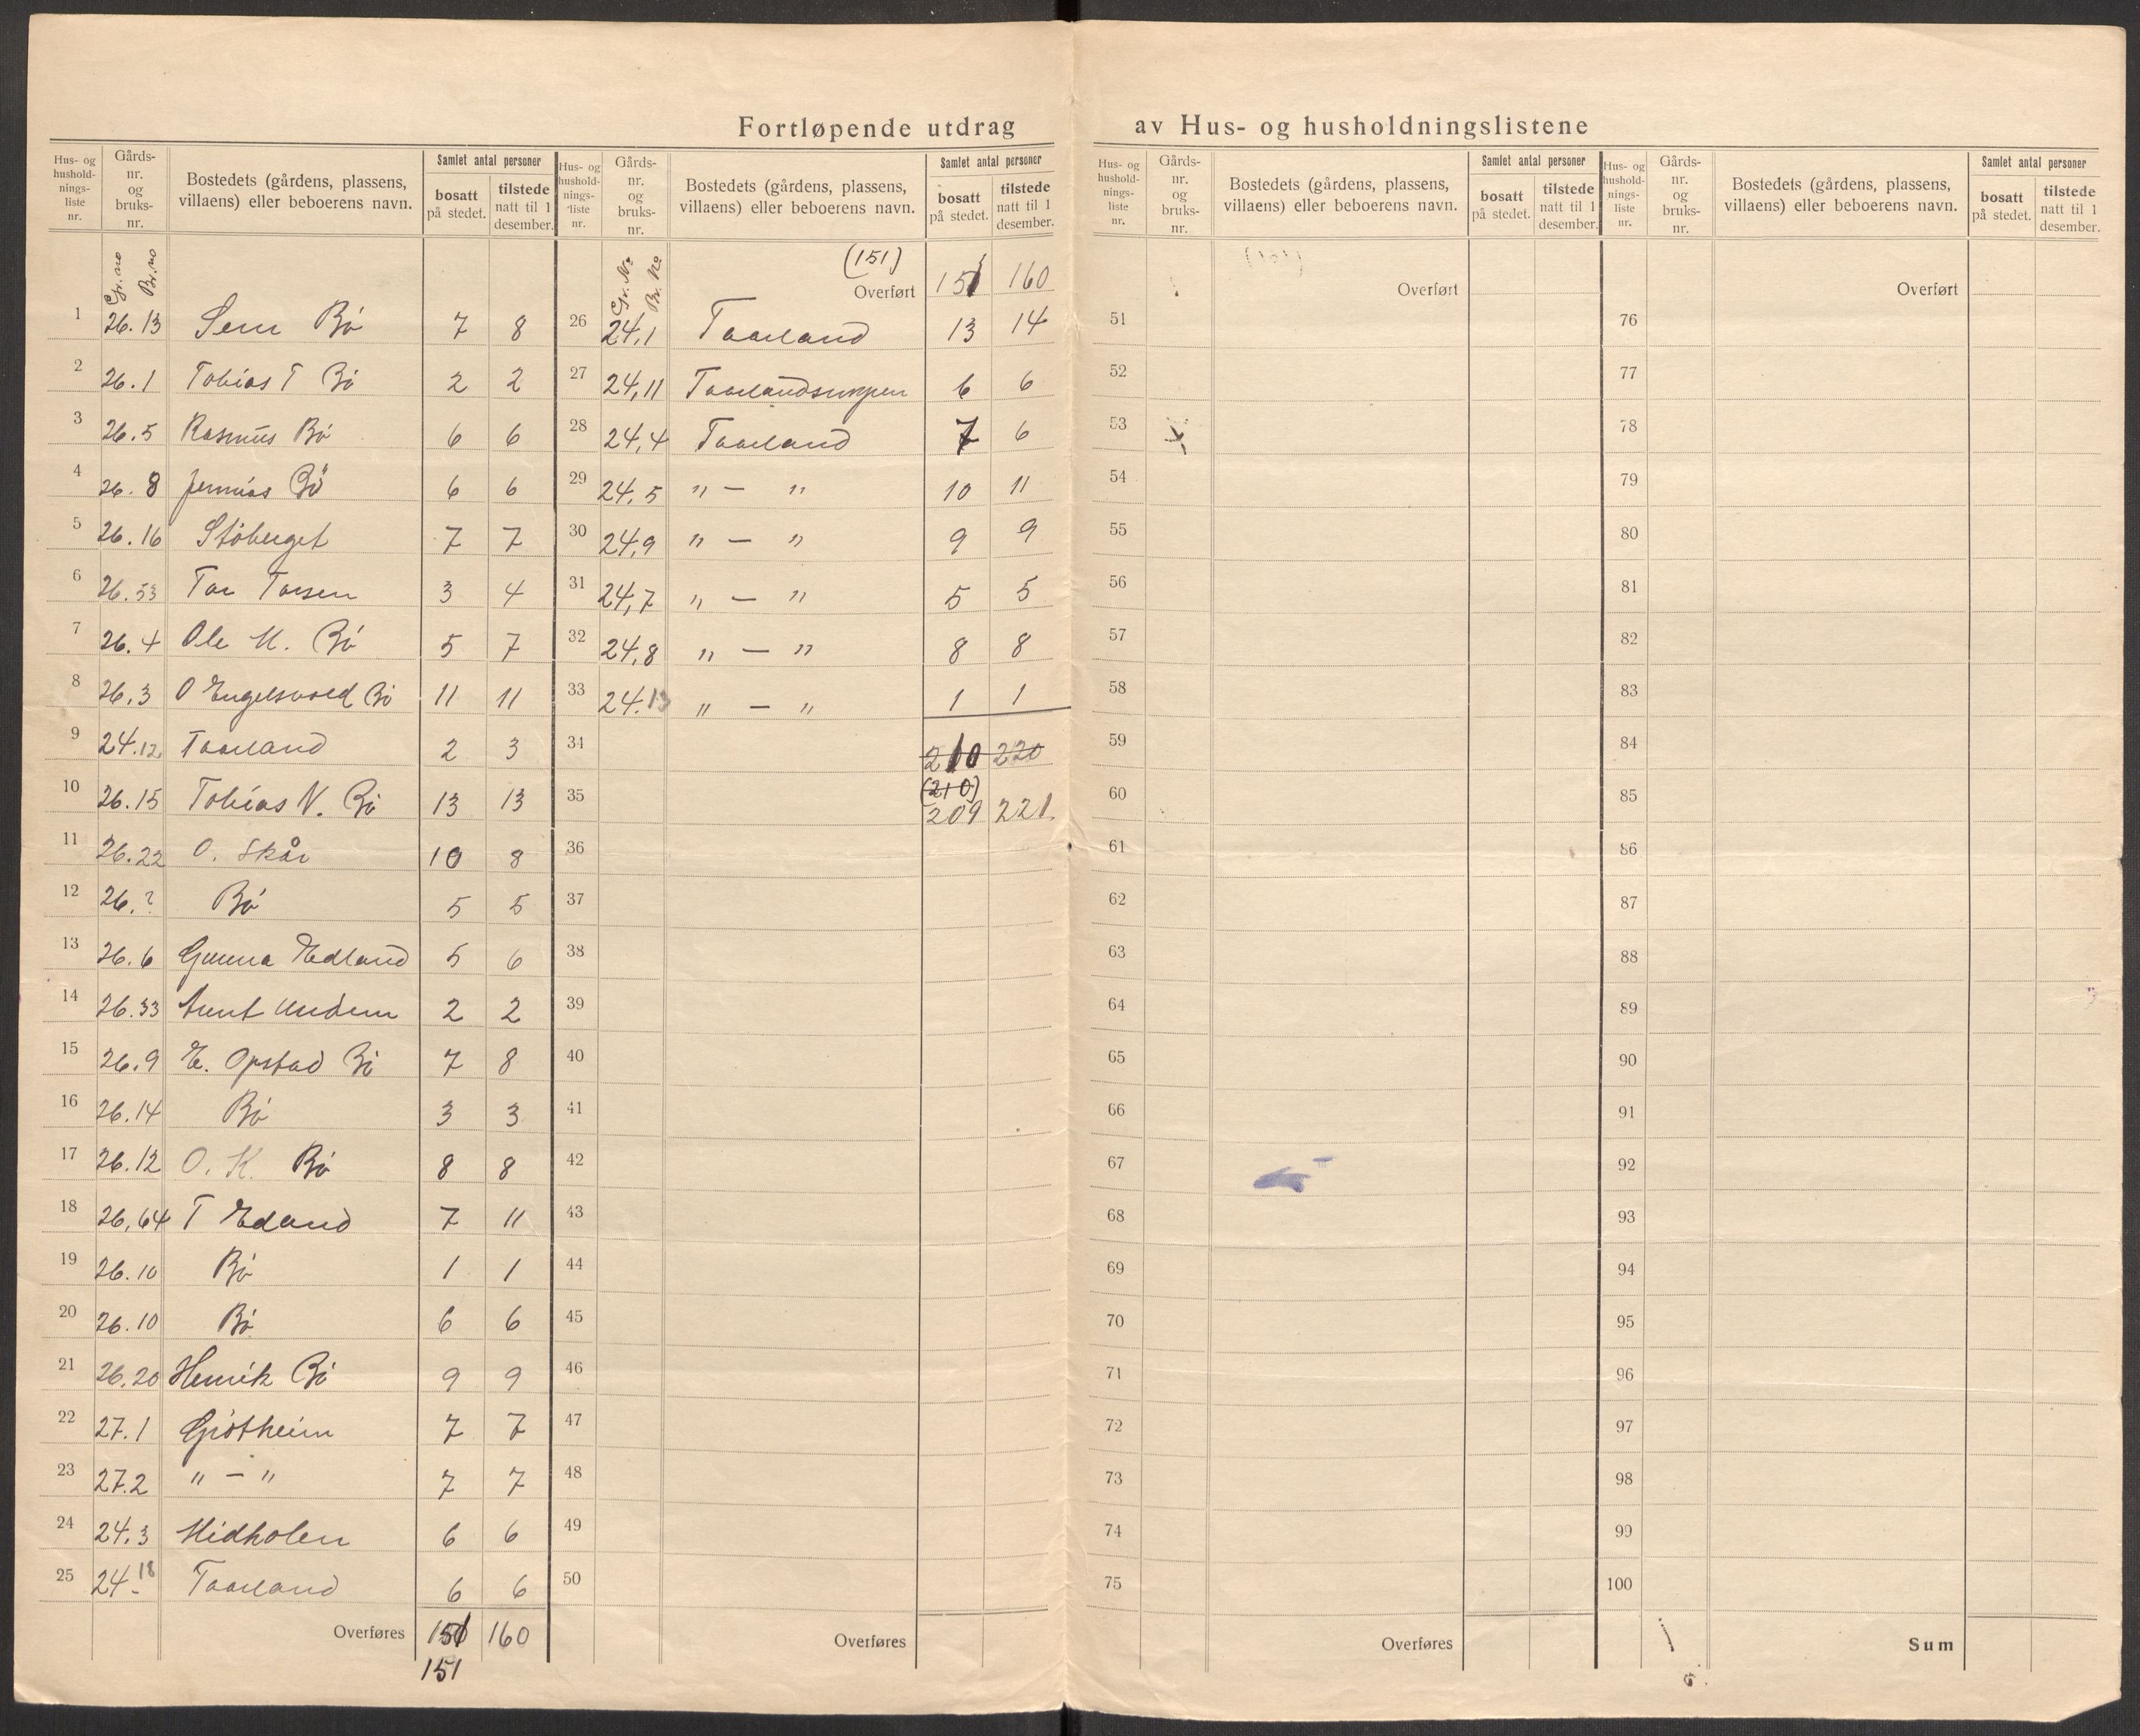 Fortløpende utdrag av Hus- og husholdningslistene
Hus- og husholdnings-liste nr. Gårds-nr. og bruks-nr. Bostedets (gårdens, plassens, villaens) eller beboerens navn. Samlet antal personer bosatt på stedet. tilstede natt til 1 desember.
Gr. no Br. no
1 26.13 Sem Bø 7 8
2 26.1 Tobias T Bø 2 2
3 26.5 Rasmus Bø 6 6
4 26.8 Jermias Bø 6 6
5 26.16 Støberget 7 7
6 26.53 Tor Torsen 3 4
7 26.4 Ole M. Bø 5 7
8 26.3 O Engelsvold Bø 11 11
9 24.12 Taarland 2 3
10 26.15 Tobias N. Bø 13 13
11 26.22 O. Skår 10 8
12 26.? Bø 5 5
13 26.6 Gunna Edland 5 6
14 26.33 Arent Undem 2 2
15 26.9 E. Opstad Bø 7 8
16 26.14 Bø 3 3
17 26.12 O. K. Bø 8 8
18 26,64 T Edland 7 11
19 26.10 Bø 1 1
20 26.10 Bø 6 6
21 26.20 Henrik Bø 9 9
22 27.1 Grotheim 7 7
23 27.2 " — " 7 7
24 24.3 Midholen 6 6
25 24.18 Taarland 6 6
Overføres 151 160
151
Hus- og husholdnings-liste nr. Gårds-nr. og bruks-nr. Bostedets (gårdens, plassens, villaens) eller beboerens navn. Samlet antal personer bosatt på stedet. tilstede natt til 1 desember.
Gr. No Br. No
(151)
Overført 151 160
26 24,1 Taarland 13 14
27 24,11 6 6
28 24,4 Taarland 7 6
29 24,5 " — " 10 11
30 24,9 " — " 9 9
31 24,7 " — " 5 5
32 24,8 " — " 8 8
33 24.13 " — " 1 1
34 210 220
(210)
35 209 221
36
37
38
39
40
41
42
43
44
45
46
47
48
49
50
Overføres
Hus- og husholdnings-liste nr. Gårds-nr. og bruks-nr. Bostedets (gårdens, plassens, villaens) eller beboerens navn. Samlet antal personer bosatt på stedet. tilstede natt til 1 desember.
Overført
51
52
53
54
55
56
57
58
59
60
61
62
63
64
65
66
67
68
69
70
71
72
73
74
75
Overføres
Hus- og husholdnings-liste nr. Gårds-nr. og bruks-nr. Bostedets (gårdens, plassens, villaens) eller beboerens navn. Samlet antal personer bosatt på stedet. tilstede natt til 1 desember.
Overført
76
77
78
79
80
81
82
83
84
85
86
87
88
89
90
91
92
93
94
95
96
97
98
99
100
Sum